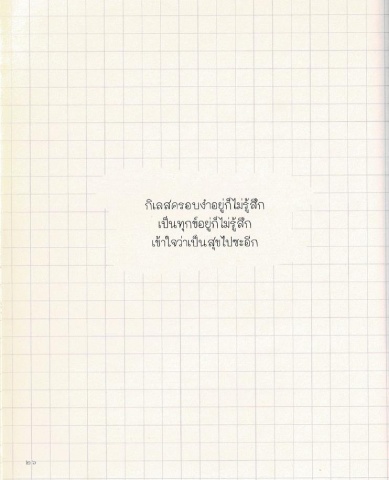 กิเลสครอบงำอยู่ก็ไม่รู้สึก
เป็นทุกข์อยู่ก็ไม่รู้สึก
เข้าใจว่าเป็นสุขไปซะอีก
๒๖